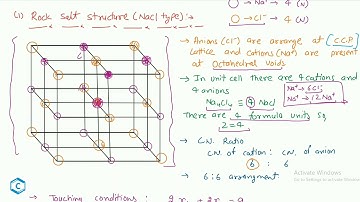 O → Na⁺ → 4 (N)
(1) Rock salt structure (NaCl type) :→
O → Cl⁻ → 4 (N)
→ Anions (Cl⁻) are arrange at [C.C.P]
Lattice and cations (Na⁺) are present
at Octahedral voids
→ In unit cell there are 4 cations and
4 anions
Na₄Cl₄ ≡ 4 NaCl
Na⁺ → 6 Cl⁻
Na⁺ → 12 Na⁺
There are 4 formula units so,
Z = 4
→ C.N. Ratio
C.N. of cation : C.N. of anion
6 : 6
→ 6:6 arrangment
Activate Windows
Go to Settings to activate Windows.
C
→ Touching conditions :